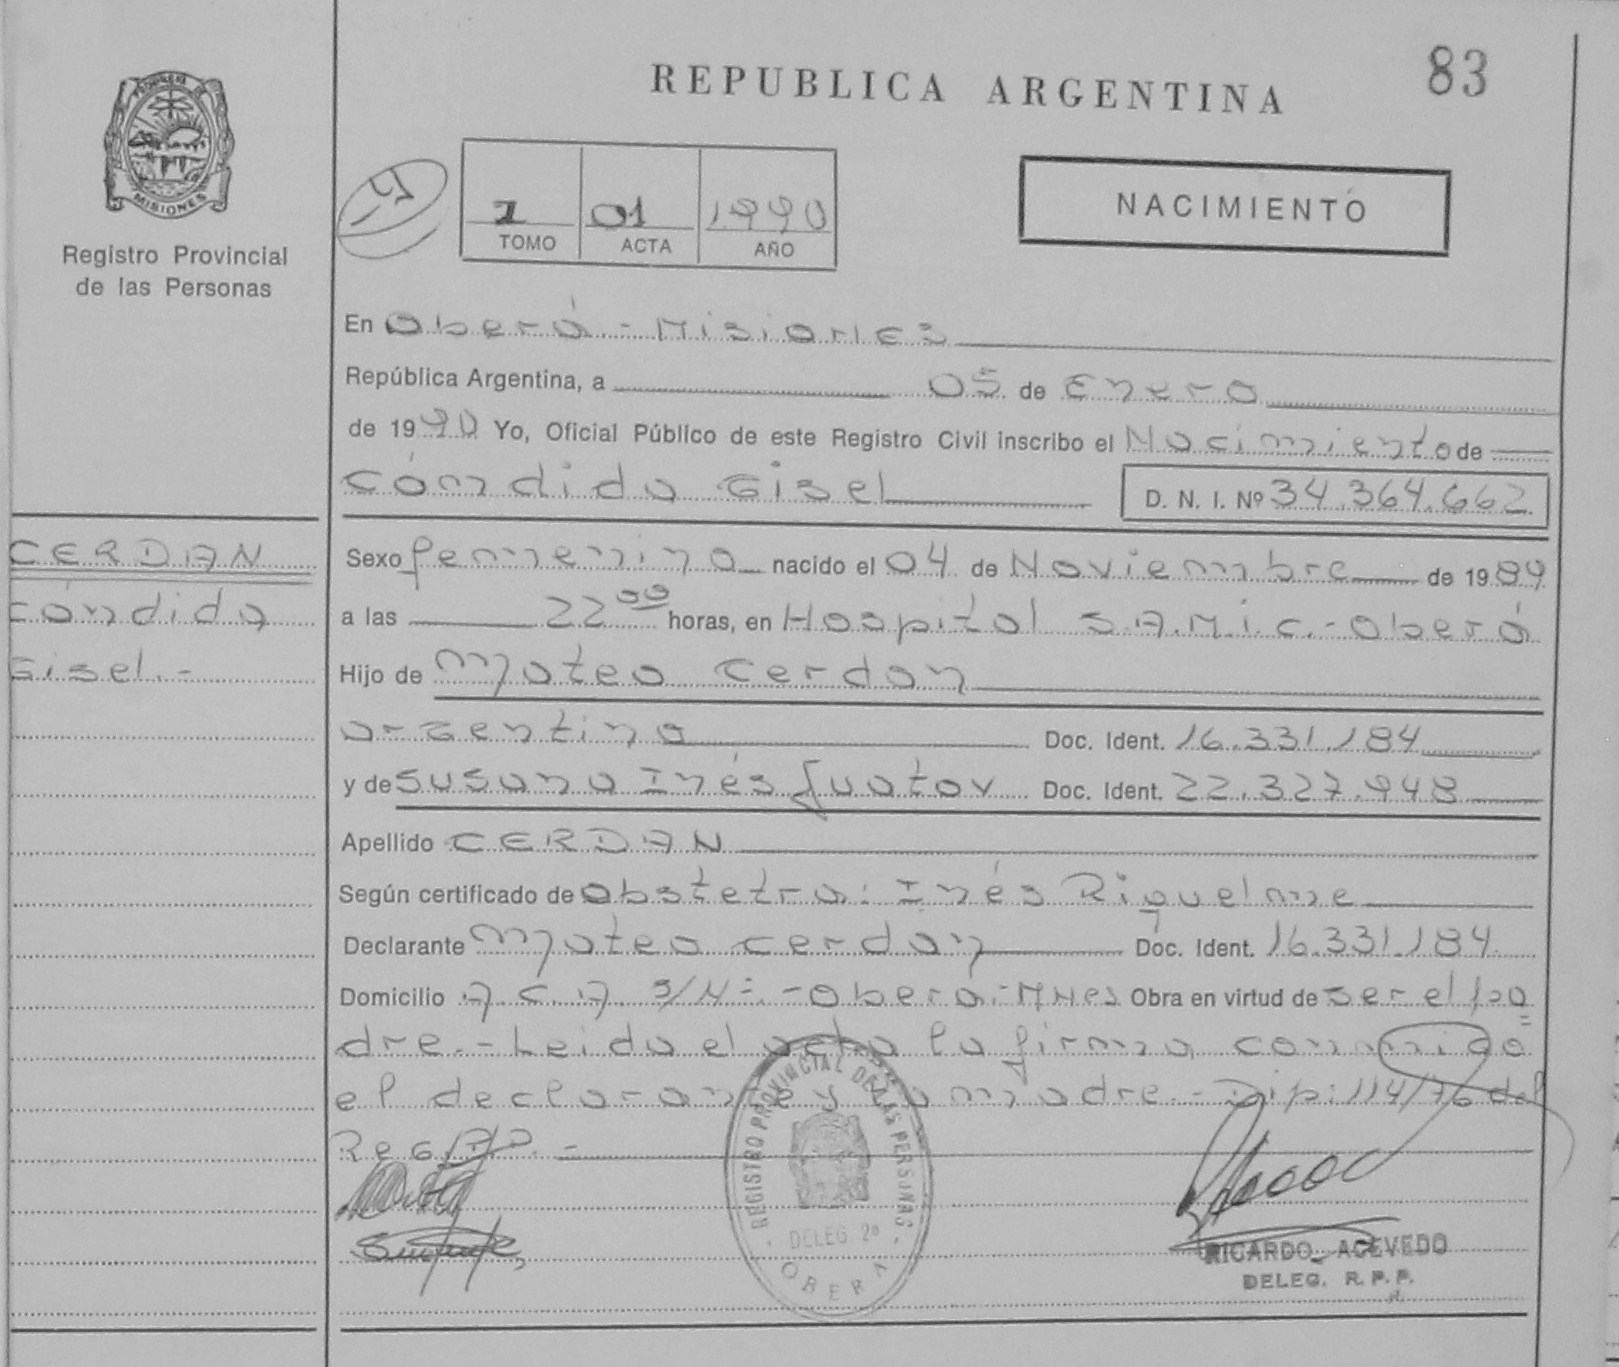 83
REPUBLICA ARGENTINA
PROVINCIA DE
MISIONES
Registro Provincial
de las Personas
1 01 1990
TOMO ACTA AÑO
NACIMIENTO
En Oberá - Misiones
República Argentina, a 05 de Enero
de 1990 Yo, Oficial Público de este Registro Civil inscribo el Nacimiento de
Cándida Gisel D. N. I. Nº 34.364.662
CERDAN
Cándida
Gisel.-
Sexo femenino nacido el 04 de Noviembre de 1989
a las 22 00 horas, en Hospital S.A.M.i.c.-Oberá
Hijo de Mateo Cerdan
argentino Doc. Ident. 16.331.184
y de Susana Inés Doc. Ident. 22.327.948
Apellido CERDAN
Según certificado de Obstetra: Inés Riquelme
Declarante Mateo cerdan Doc. Ident. 16.331.184
Domicilio A.C.A. S/Nº.-Oberá.-Mnes Obra en virtud de ser el pa
dre.-Leida el acta la firma conmigo
el declarante y la madre.-Dip:114/76 del
Reg.
REGISTRO PROVINCIAL DE LAS PERSONAS
DELEG. 2ª
OBERA
RICARDO ACEVEDO
DELEG. R. P. P.